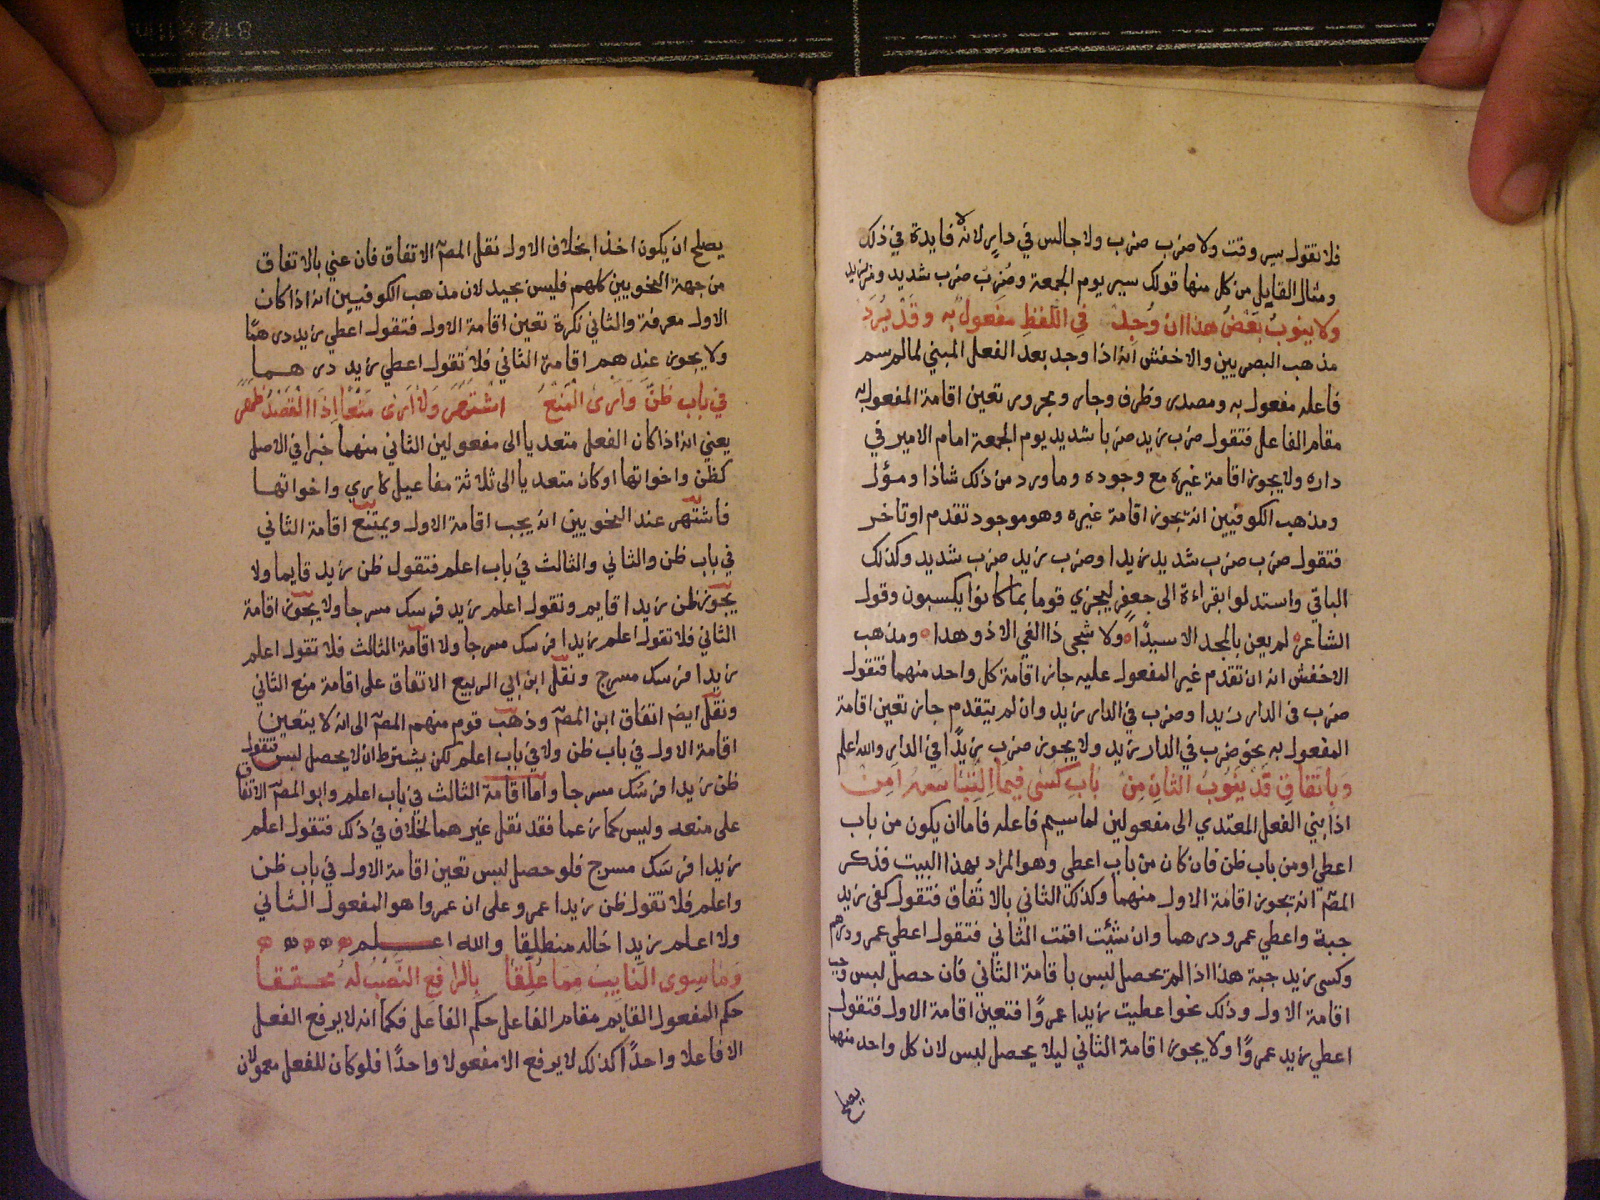 فلا تقول سير وقت ولا ضرب ضرب ولا جالس في دار لانه لا فايدة في ذلك
ومثال القابل من كل منها قولك سير يوم الجمعة وضرب ضرب شديد ومر بزيد
ولا ينوب بعض هذا ان وجد في اللفظ مفعول به وقد يرد
مذهب البصريين والاخفش انه اذا وجد بعد الفعل المبني لما لم يسم
فاعله مفعول به ومصدر وظرف وجار ومجرور تعين اقامة المفعول به
مقام الفاعل فتقول ضرب زيد ضربا شديد يوم الجمعة امام الامير في
داره ولا يجوز اقامة غيره مع وجوده وما ورد من ذلك شاذا ومؤل
ومذهب الكوفيين انه يجوز اقامة غيره وهو موجود تقدم او تاخر
فتقول ضرب ضرب شديد زيدا وضرب زيد ضرب شديد وكذلك
الباقي واستدلوا بقراءة الى جعفر ليجزي قوما بما كانوا يكسبون وقول
الشاعر لم يعن بالمجد الا سيدا ولا شجى ذا الغي الا ذو هدا ومذهب
الاخفش انه ان تقدم غير المفعول عليه جاز اقامة كل واحد منهما فتقول
ضرب في الدار زيدا وضرب في الدار زيد وان لم يتقدم جاز تعين اقامة
المفعول به نحو ضرب في الدار زيد ولا يجوز ضرب زيدا في الدار والله اعلم
وباتفاق قد ينوب الثان من باب كسى فيما التباسه امن
اذا بني الفعل المتعدي الى مفعولين لما سيم فاعله فاما ان يكون من باب
اعطي او من باب ظن فان كان من باب اعطي وهو المراد بهذا البيت فذكر
المصّ انه يجوز اقامة الاول منهما وكذلك الثاني بالاتفاق فتقول كسى زيد
جبة واعطي عمرو درهما وان شئت اقمت الثاني فتقول اعطي عمرو درهم
وكسى زيد جبة هذا اذا لم يحصل لبس باقامة الثاني فان حصل لبس وجب
اقامة الاول وذلك نحو اعطيت زيدا عمروا فتعين اقامة الاول فتقول
اعطي زيد عمروا ولا يجوز اقامة الثاني ليلا يحصل لبس لان كل واحد منهما
يصلح
يصلح ان يكون اخذا بخلاف الاول نقل المصّ الاتفاق فان عني بالاتفاق
من جهة النحويين كلهم فليس بجيد لان مذهب الكوفيين انه اذا كان
الاول معرفة والثاني نكرة تعين اقامة الاول فتقول اعطي زيد درهما
ولا يجوز عندهم اقامة الثاني فلا تقول اعطي زيد درهما
في باب ظن وارى المنع اشتهر ولا ارى منعا اذا القصد ظهر
يعني انه اذا كان الفعل متعديا الى مفعولين الثاني منهما خبرا في الاصل
كظن واخواتها او كان متعديا الى ثلاثة مفاعيل كاري واخواتها
فاشتهر عند النحويين انه يجب اقامة الاول ويمتنع اقامة الثاني
في باب ظن والثاني والثالث في باب اعلم فتقول ظن زيد قايما ولا
يجوز ظن زيدا قايم وتقول اعلم زيد فرسك مسرجا ولا يجوز اقامة
الثاني فلا تقول اعلم زيدا فرسك مسرجا ولا اقامة الثالث فلا تقول اعلم
زيدا فرسك مسرج ونقل ابن ابي الربيع الاتفاق على اقامة منع الثاني
ونقل ايضا اتفاق ابن المصّ وذهب قوم منهم المصّ الى انه لا يتعين
اقامة الاول في باب ظن ولا في باب اعلم لكن يشترط ان لا يحصل لبس فتقول
ظن زيدا فرسك مسرجا واما اقامة الثالث في باب اعلم وابو المصّ الاتفاق
على منعه وليس كما زعما فقد نقل غيرهما الخلاف في ذلك فتقول اعلم
زيدا فرسك مسرج فلو حصل لبس تعين اقامة الاول في باب ظن
واعلم فلا تقول ظن زيدا عمرو على ان عمروا هو المفعول الثاني
ولا اعلم زيدا خالد منطلقا والله اعلم
وما سوى النايب مما علقا بالرافع النصب له محققا
حكم المفعول القايم مقام الفاعل حكم الفاعل فكما انه لا يرفع الفعل
الا فاعلا واحدا كذلك لا يرفع الا مفعولا واحدا فلو كان للفعل معمولان